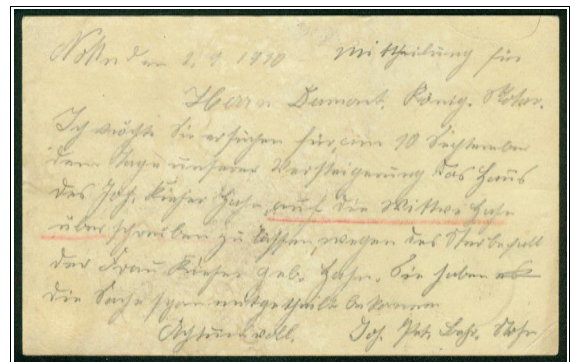 den 8. 9 1910 Mittheilung für
Herrn Dumont, Königl. Notar.
Ich möchte Sie ersuchen für am 10 September
dem Tage unserer Versteigerung das Haus
des Joh. Kiefer Hahn auf die Wittwe Hahn
überschreiben zu lassen, wegen des Sterbefall
der Frau Kiefer geb. Hahn. Sie haben
die Sache schon mitgetheilt bekommen
Achtungsvoll. Joh. Pet.